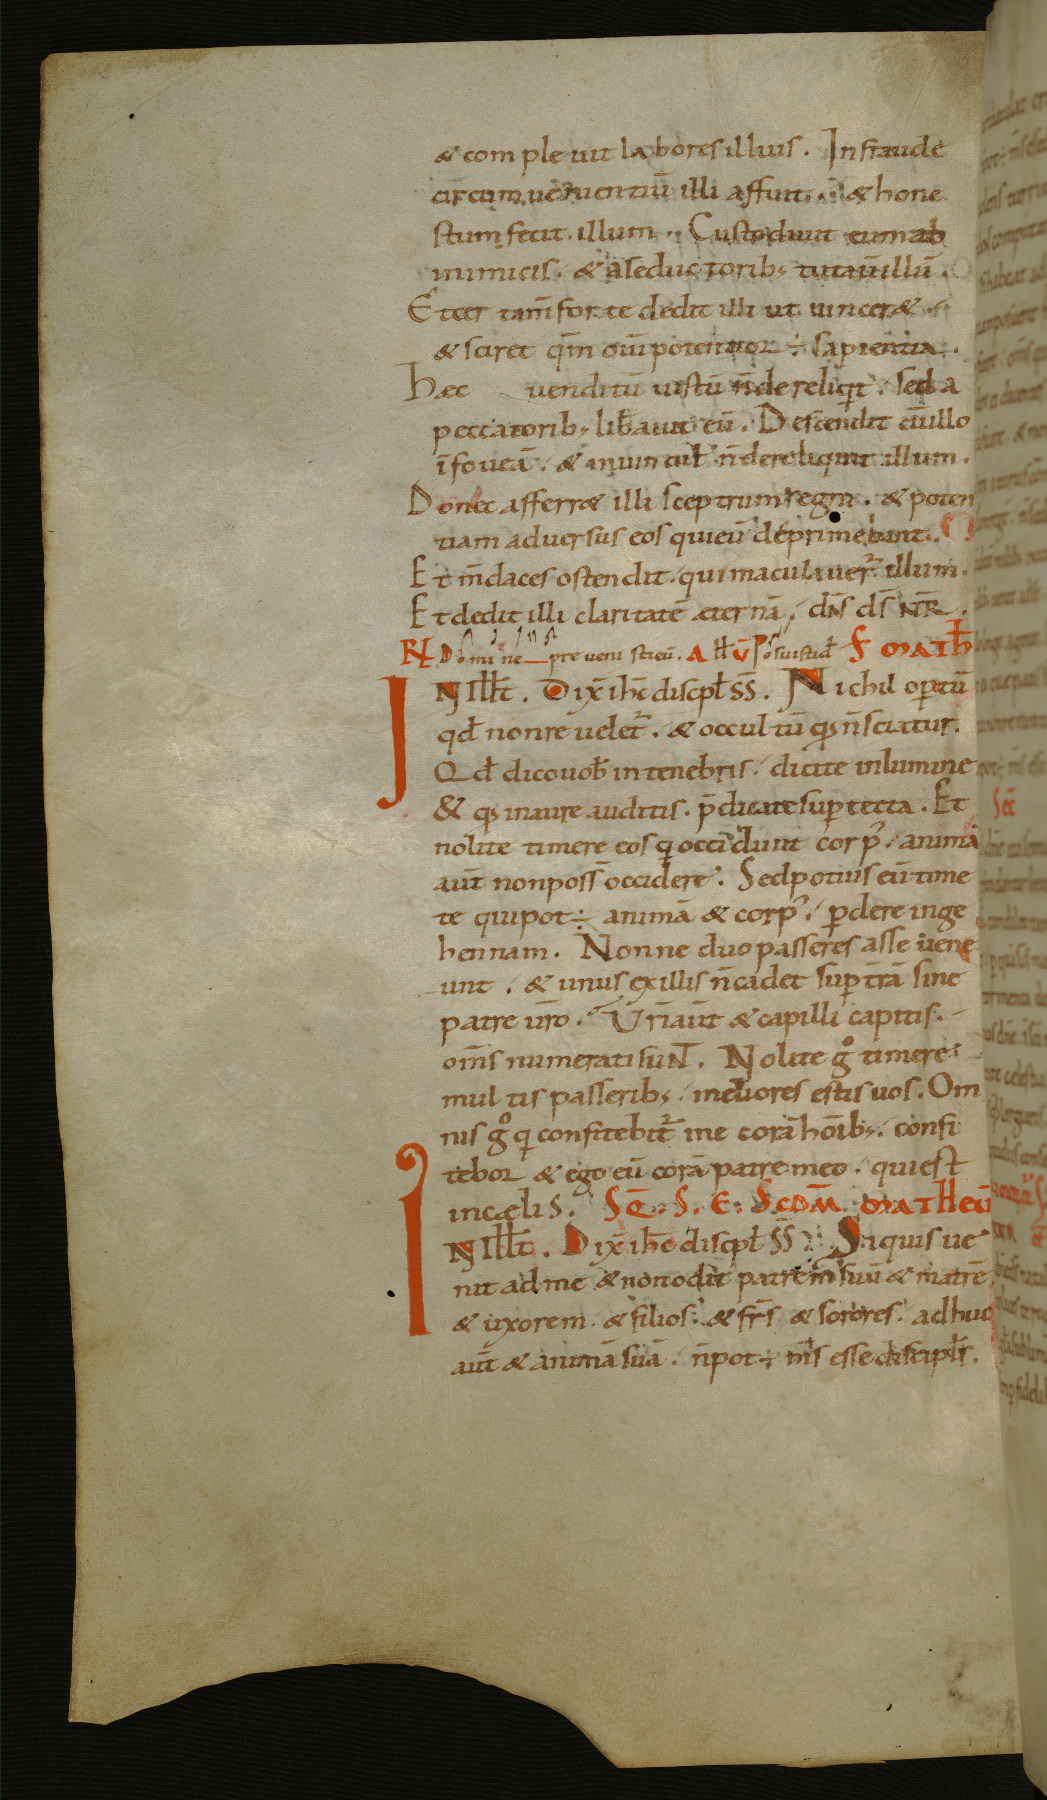 & comple uit labores illius. In fraude
circumuenientiū illi affuit. & hone
stum fecit illum. Custodiuit eum ab
inimicis. & aseductorib; tutauit illū.
Et certam̄ forte dedit illi ut uincer&.
& sciret qm̄ om̄i potentior ÷ sapientia.
Hec uenditū iustū n̄ dereliqit. sed a
peccatorib; lib̄auit eū. Descendit cū illo
ī foueā. & inuincul̄ n̄ dereliquit illum.
Donec afferr& illi sceptrum regni. & poten
tiam aduersus eos quieū deprimebant.
Et m̄daces ostendit. qui maculauer̄ illum.
Et dedit illi claritatē æternā. dn̄s ds̄ nr̄.
Domine preuenistieū. A ll̄ v̄ Posuistid̄ S MATH̄
IN Ill̄t̄. Dix̄ ih̄c discpl̄ s̄s̄. Nichil op̄tū
qd̄ nonreuelet̄. & occultū qs n̄sciatur.
Qd̄ dicouob̄ intenebris. dicite inlumine
& qs inaure auditis. p̄dicate sup̄ tecta. Et
nolite timere eos q occidunt corp̄. animā
aut̄ nonposs̄ occidere. Sedpotius eū time
te quipot÷ animā & corp̄. p̄dere inge
hennam. Nonne duo passeres asse uene
unt. & unus exillis n̄cadet sup̄ tr̄ā sine
patre ur̄o. Ur̄i aut̄ & capilli capitis.
om̄s numeratisunt. Nolite gº timere
multis passerib; meliores estis uos. Om
nis gº q confitebit̄ me corā hoīb;. confi
tebor & ego eū corā patre meo. quiest
incælis. SC̄. S. E. SCDM̄. MATHEŪ
IN Ill̄t̄. Dix̄ ih̄c discpl̄ s̄s̄. Siquis ue
nit adme & nonodit patrem suū & matrē
& uxorem. & filios. & fr̄s & sorores. adhuc
aut̄ & animā suā. n̄pot÷ m̄s esse discipl̄s.